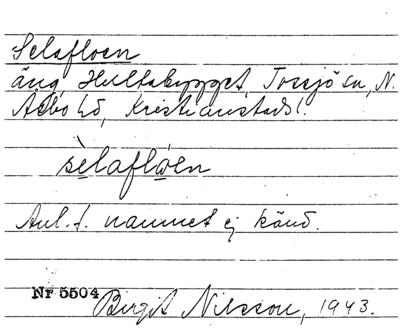 Selafloen
äng, Hultabygget, Torsjö sn, N.
Åsbo hd, Kristianstads l.
sèlafløen
Anl. t. namnet ej känd.
Nr 5504 Birgit Nilsson, 1943.